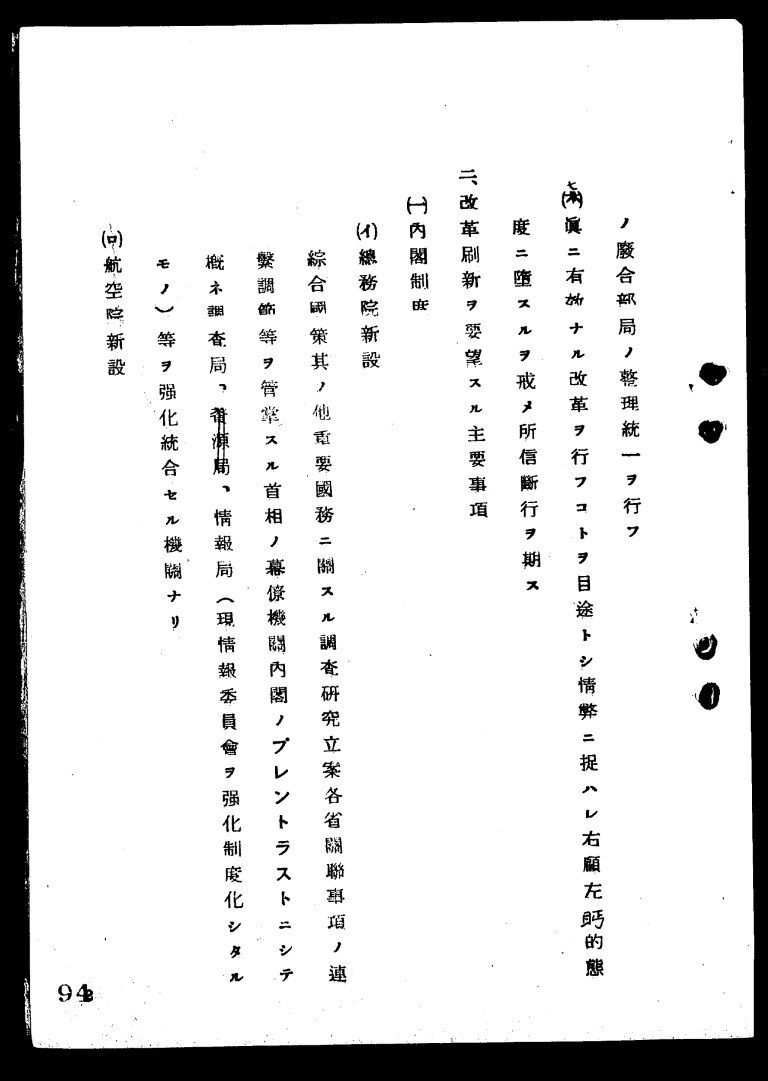 ノ廢合部局ノ整理統一ヲ行フ
眞ニ有效ナル改革ヲ行フコトヲ目途トシ情弊ニ捉ハレ右顧左眄的態
度ニ墮スルヲ戒メ所信斷行ヲ期ス
二、改革刷新ヲ要望スル主要事項
㈠內閣制度
(イ)總務院新設
綜合國策其ノ他重要國務ニ關スル調査硏究立案各省關聯事項ノ連
繫調節等ヲ管掌スル首相ノ幕僚機關內閣ノブレントラストニシテ
槪ネ調査局、資源局、情報局(現情報委員會ヲ强化制度化シタル
モノ)等ヲ强化統合セル機關ナリ
(ロ)航空院新設
94